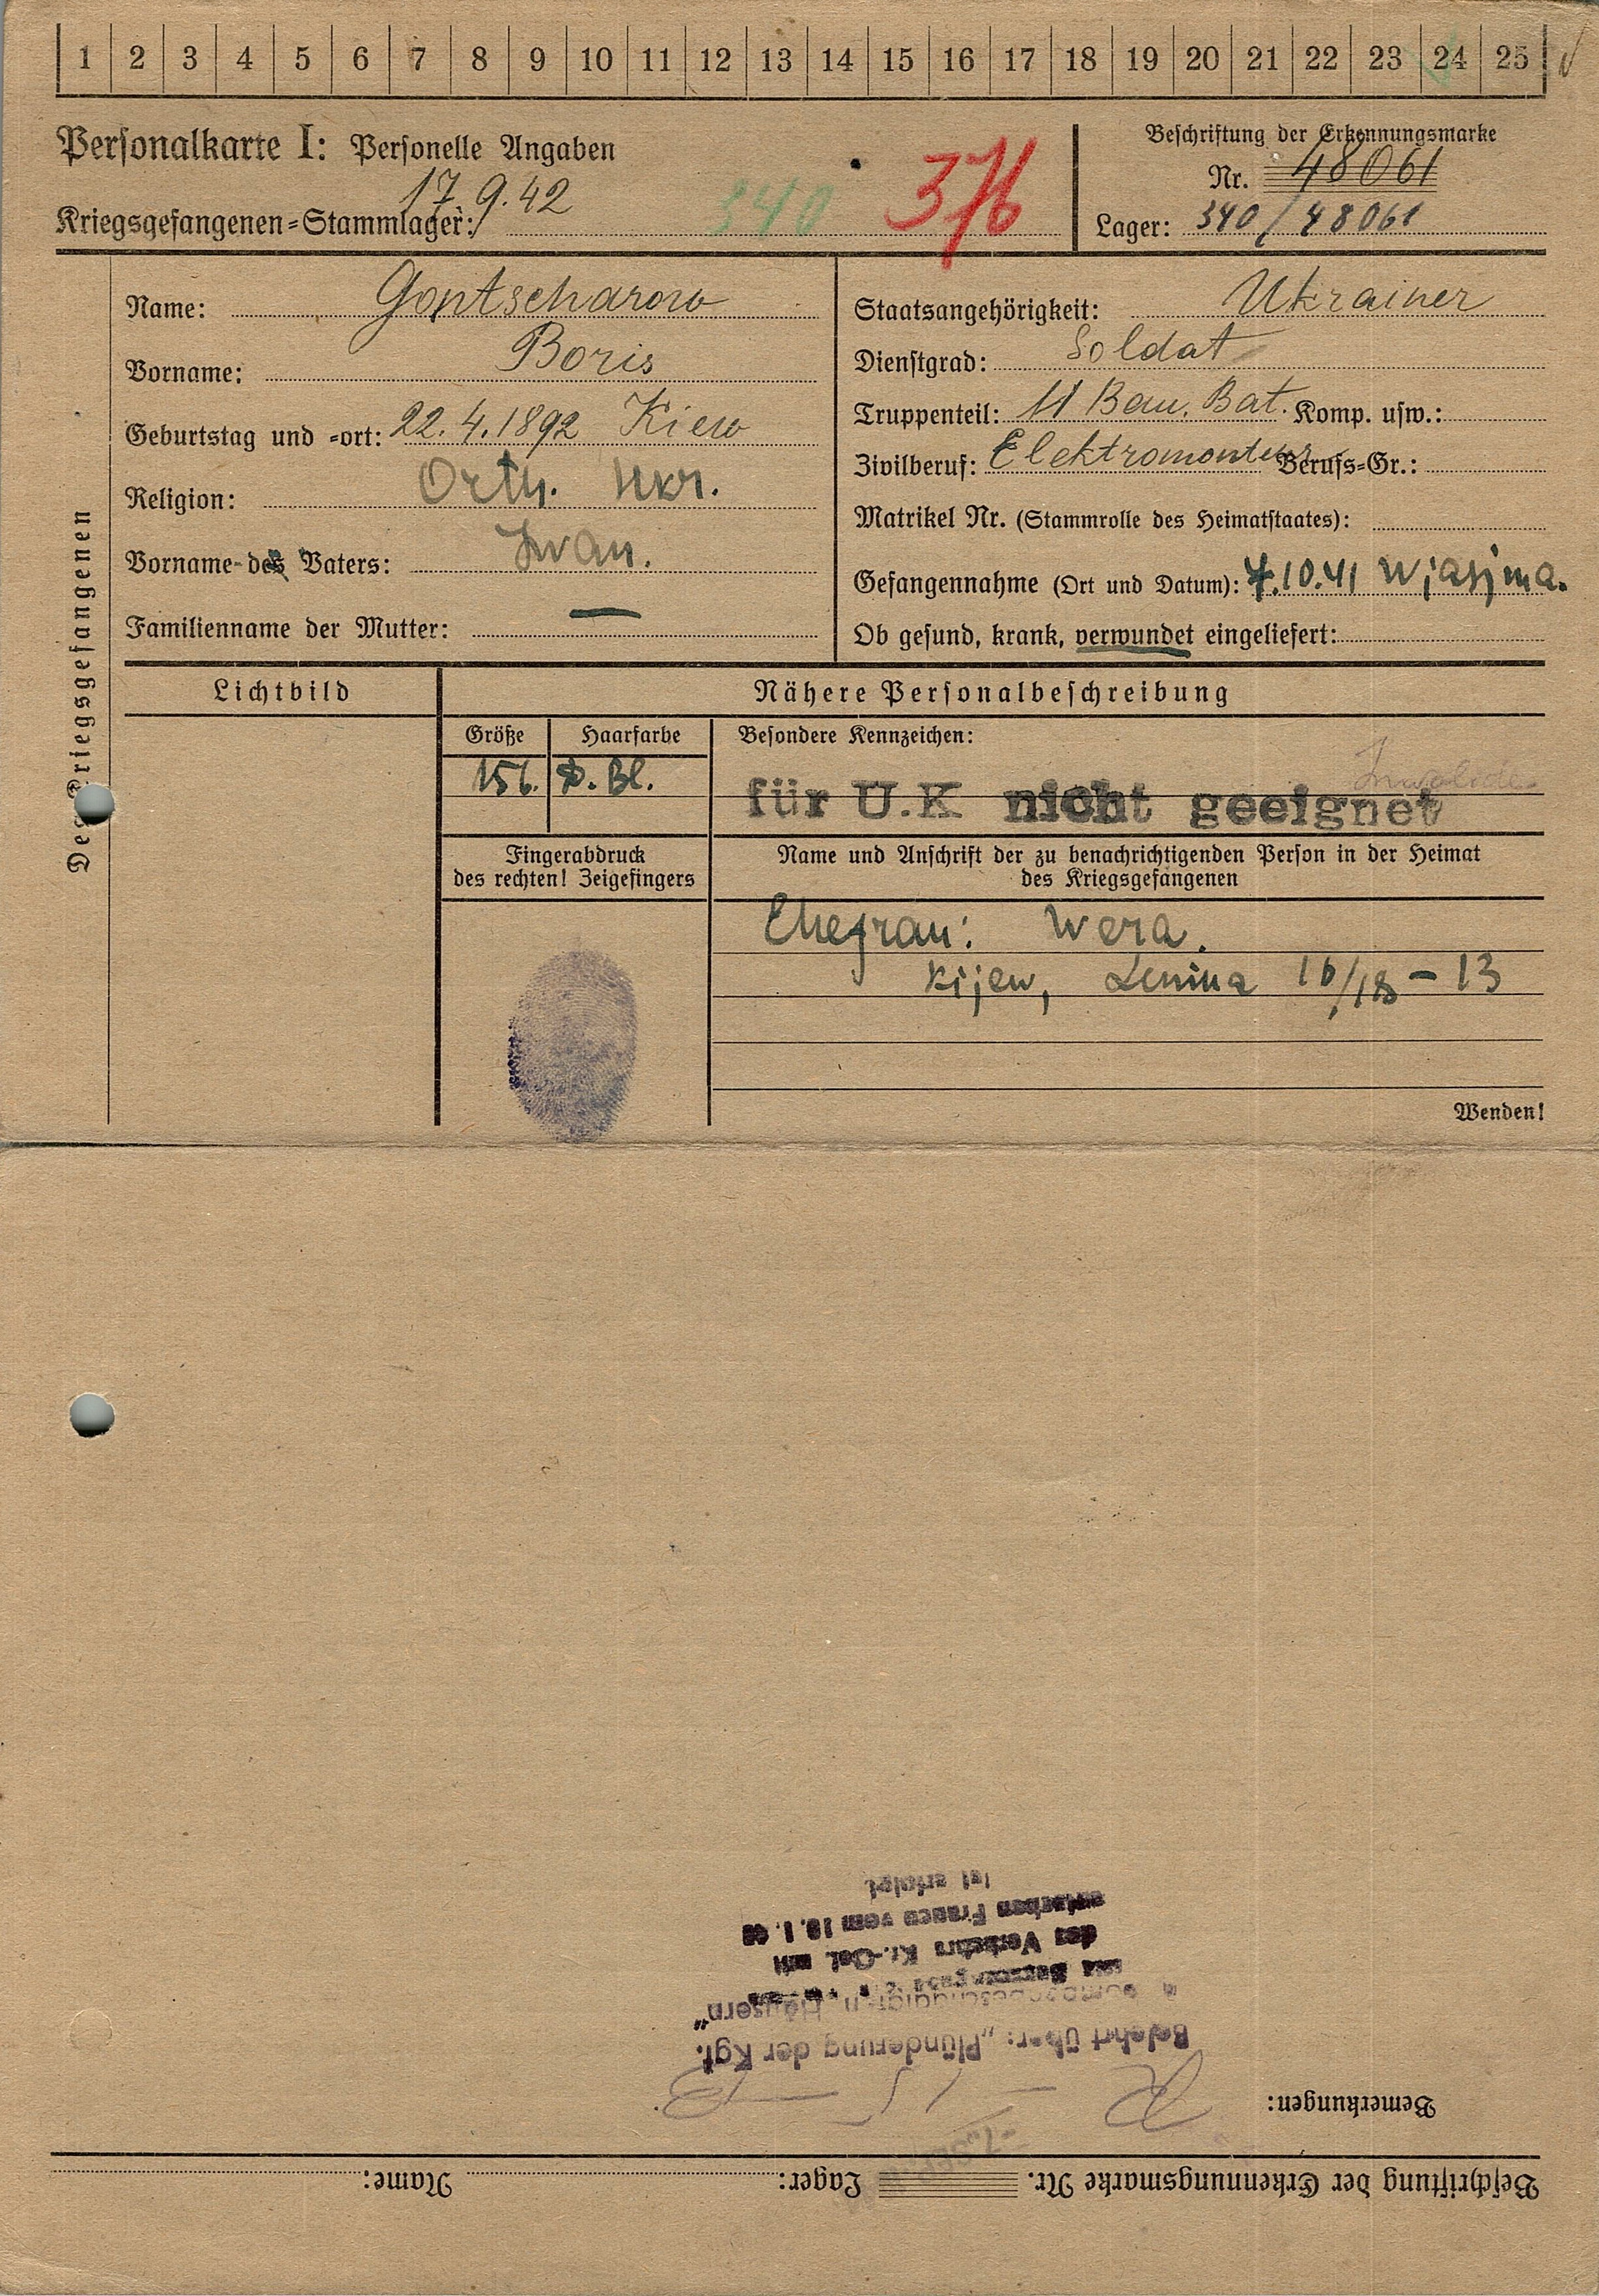 1 2 3 4 5 6 7 8 9 10 11 12 13 14 15 16 17 18 19 20 21 22 23 24 25
Personalkarte I: Personelle Angaben
Beschriftung der Erkennungsmarke
Nr. 48061
17.9.42
Kriegsgefangenen=Stammlager: 340 376
Lager: 340/48061
Des Kriegsgefangenen
Name: Gontscharow
Vorname: Boris
Geburtstag und =ort: 22.4.1892 Kiew
Religion: Orth. Ukr.
Vorname des Vaters: Iwan.
Familienname der Mutter: —
Staatsangehörigkeit: Ukrainer
Dienstgrad: Soldat
Truppenteil: 11 Bau. Bat. Komp. usw.:
Zivilberuf: Elektromonteur Berufs=Gr.:
Matrikel Nr. (Stammrolle des Heimatstaates):
Gefangennahme (Ort und Datum): 7.10.41 Wjasjma.
Ob gesund, krank, verwundet eingeliefert:
Lichtbild
Nähere Personalbeschreibung
Größe Haarfarbe Besondere Kennzeichen:
156. D. Bl.
Invalide
für U.K nicht geeignet
Fingerabdruck
des rechten! Zeigefingers
Name und Anschrift der zu benachrichtigenden Person in der Heimat
des Kriegsgefangenen
Ehefrau: Wera.
Kijew, Lenina 16/18 – 13
Wenden!
Beschriftung der Erkennungsmarke Nr. Lager: Name:
Bemerkungen:
Belehrt über: „Plünderung der Kgf.
bombenbeschädigten Häusern"
des Verkehrs Kr.-Gef. mit
deutschen Frauen vom 18.1.43
ist erfolgt